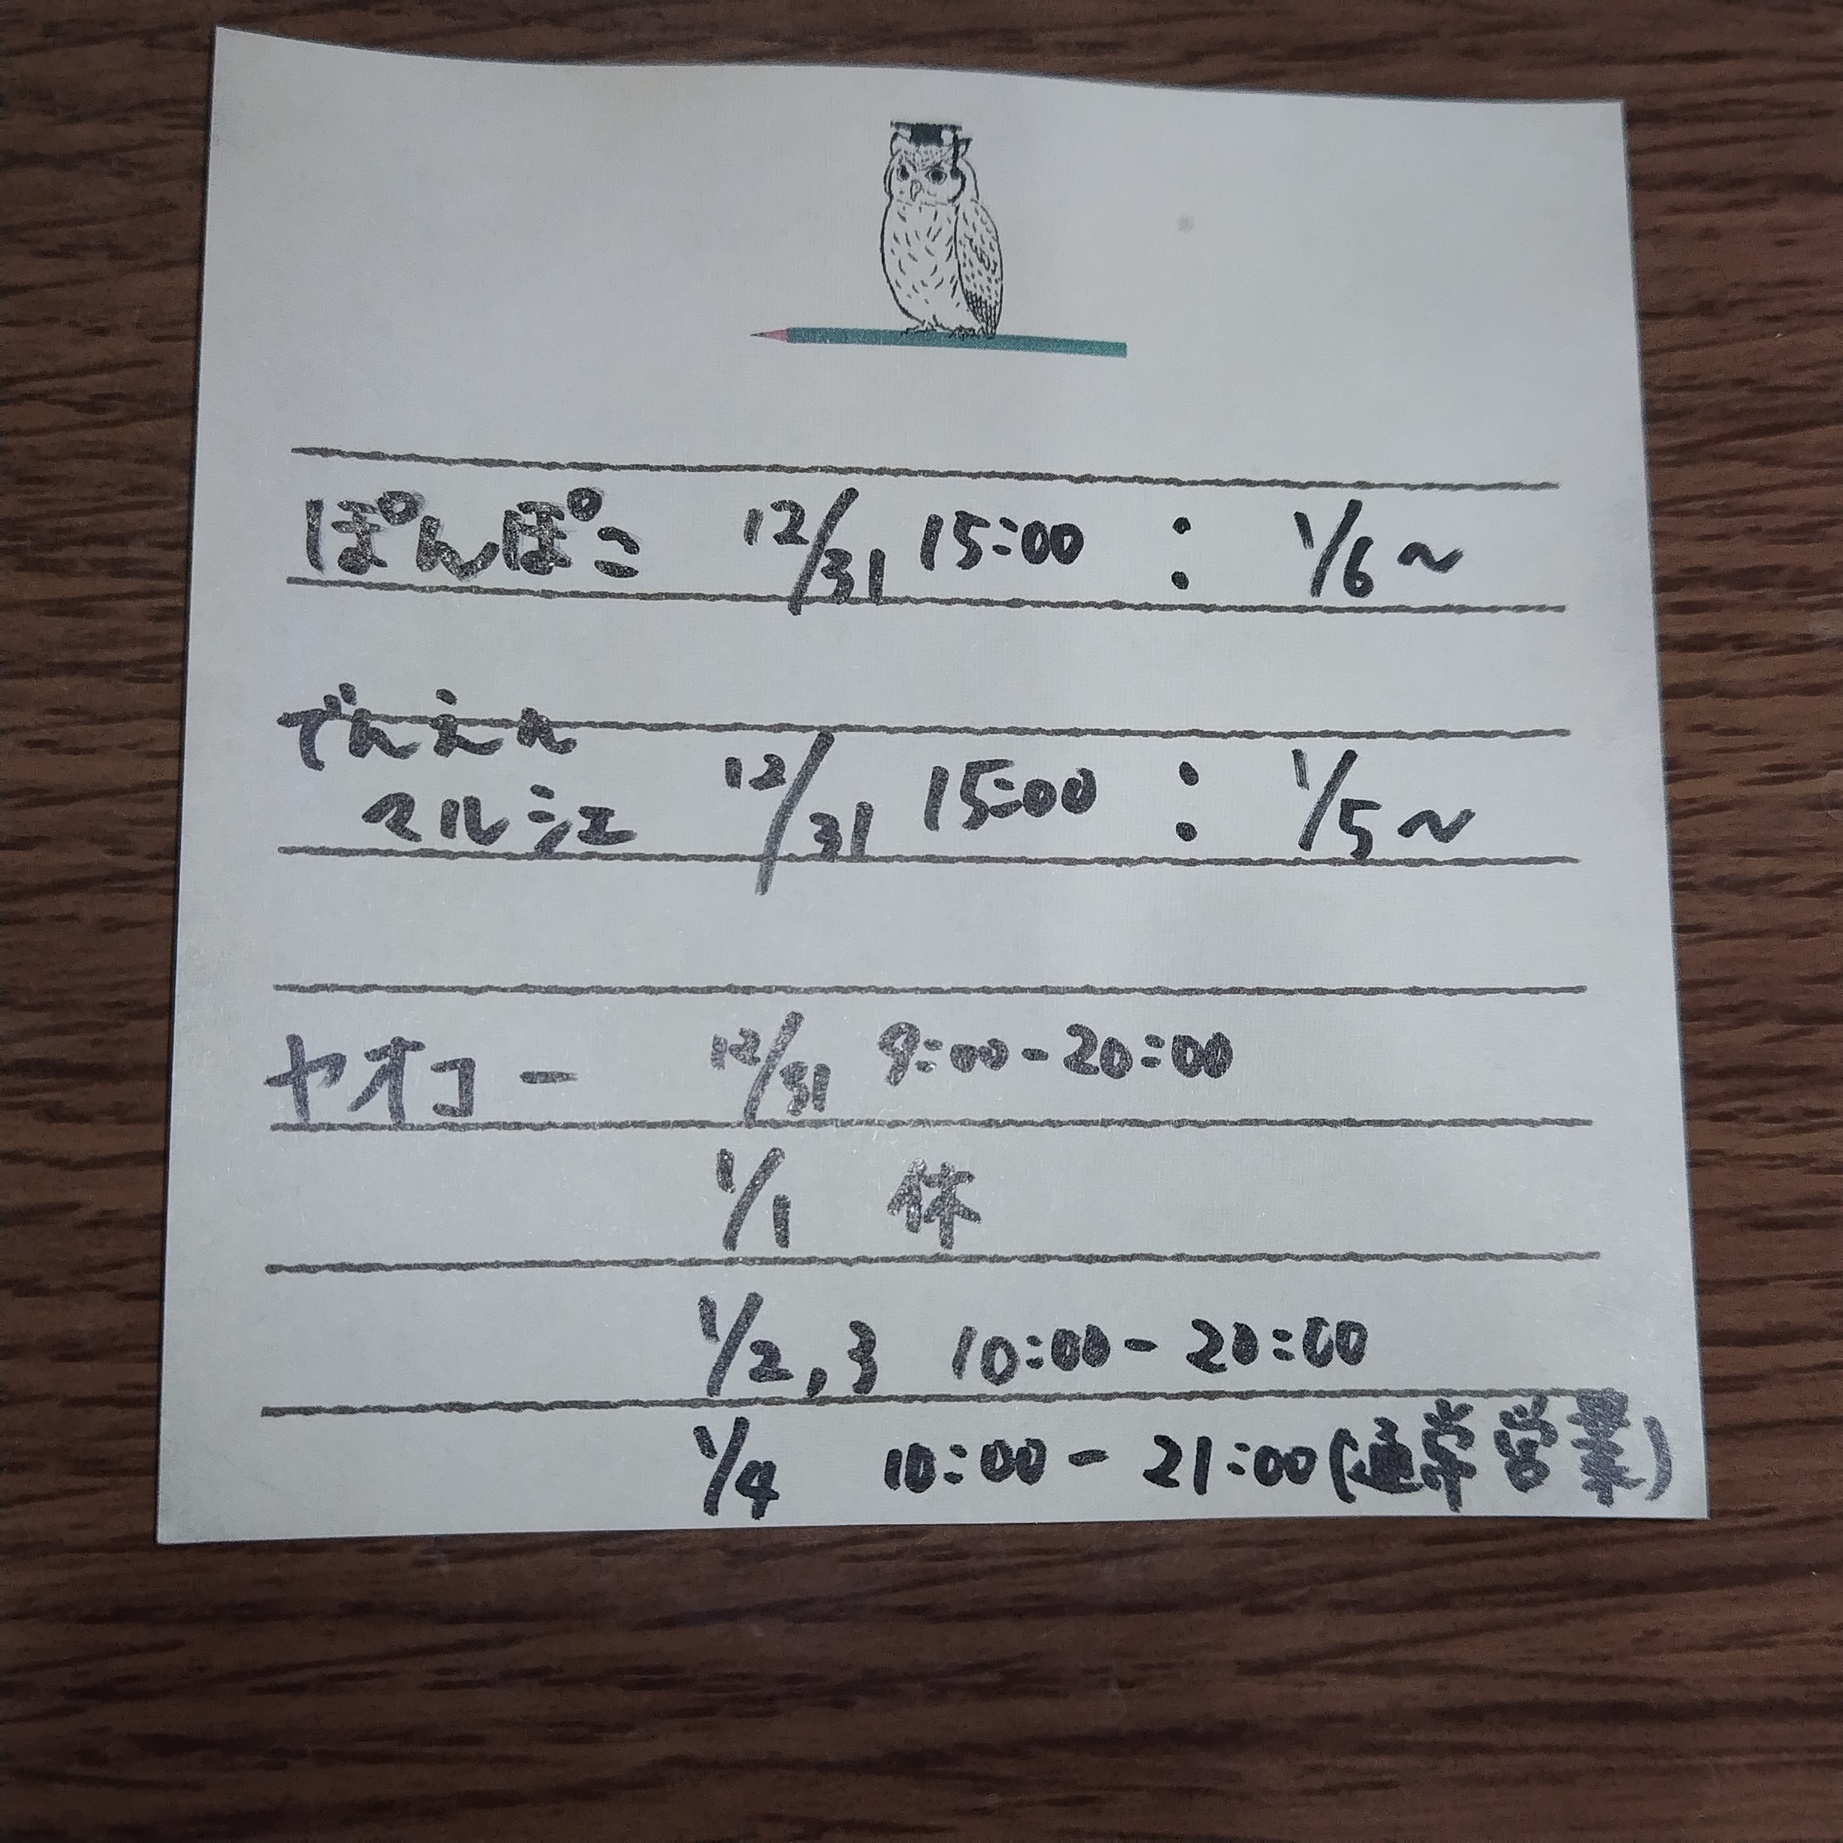 ぽんぽこ 12/31 15:00 : 1/6~
でんえん
マルシェ 12/31 15:00 : 1/5~
ヤオコー 12/31 9:00-20:00
1/1 休
1/2,3 10:00-20:00
1/4 10:00-21:00(通常営業)